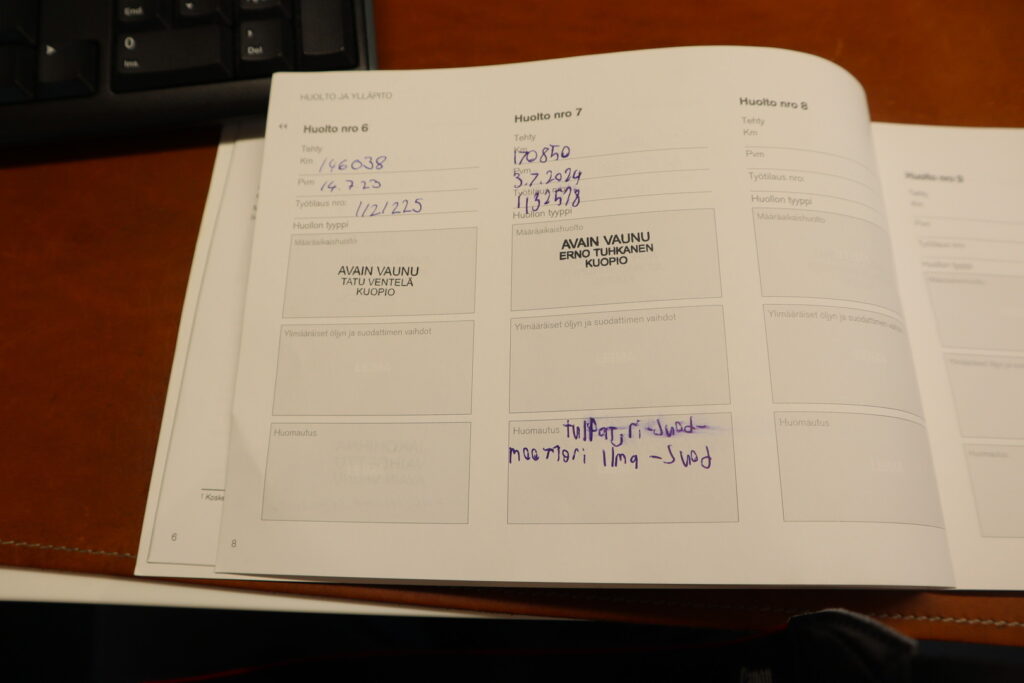 End
0
Ins
Del
HUOLTO JA YLLÄPITO
Huolto nro 6
Tehty
Km 146038
Pvm 14.7.23
Työtilaus nro: 1121225
Huollon tyyppi
Määräaikaishuolto
AVAIN VAUNU
TATU VENTELÄ
KUOPIO
Ylimääräiset öljyn ja suodattimen vaihdot
Huomautus
Huolto nro 7
Tehty
Km 170850
Pvm 3.7.2024
Työtilaus nro: 1132578
Huollon tyyppi
Määräaikaishuolto
AVAIN VAUNU
ERNO TUHKANEN
KUOPIO
Ylimääräiset öljyn ja suodattimen vaihdot
Huomautus
ilma -suod
Huolto nro 8
Tehty
Km
Pvm
Työtilaus nro:
Huollon tyyppi
Määräaikaishuolto
Ylimääräiset öljyn ja suodattimen
Huomautus
Huolto nro 9
Tehty
Km
Pvm
Työtilaus nro
Huollon tyyppi
Huomautus
1 Koske
6
8
Canon